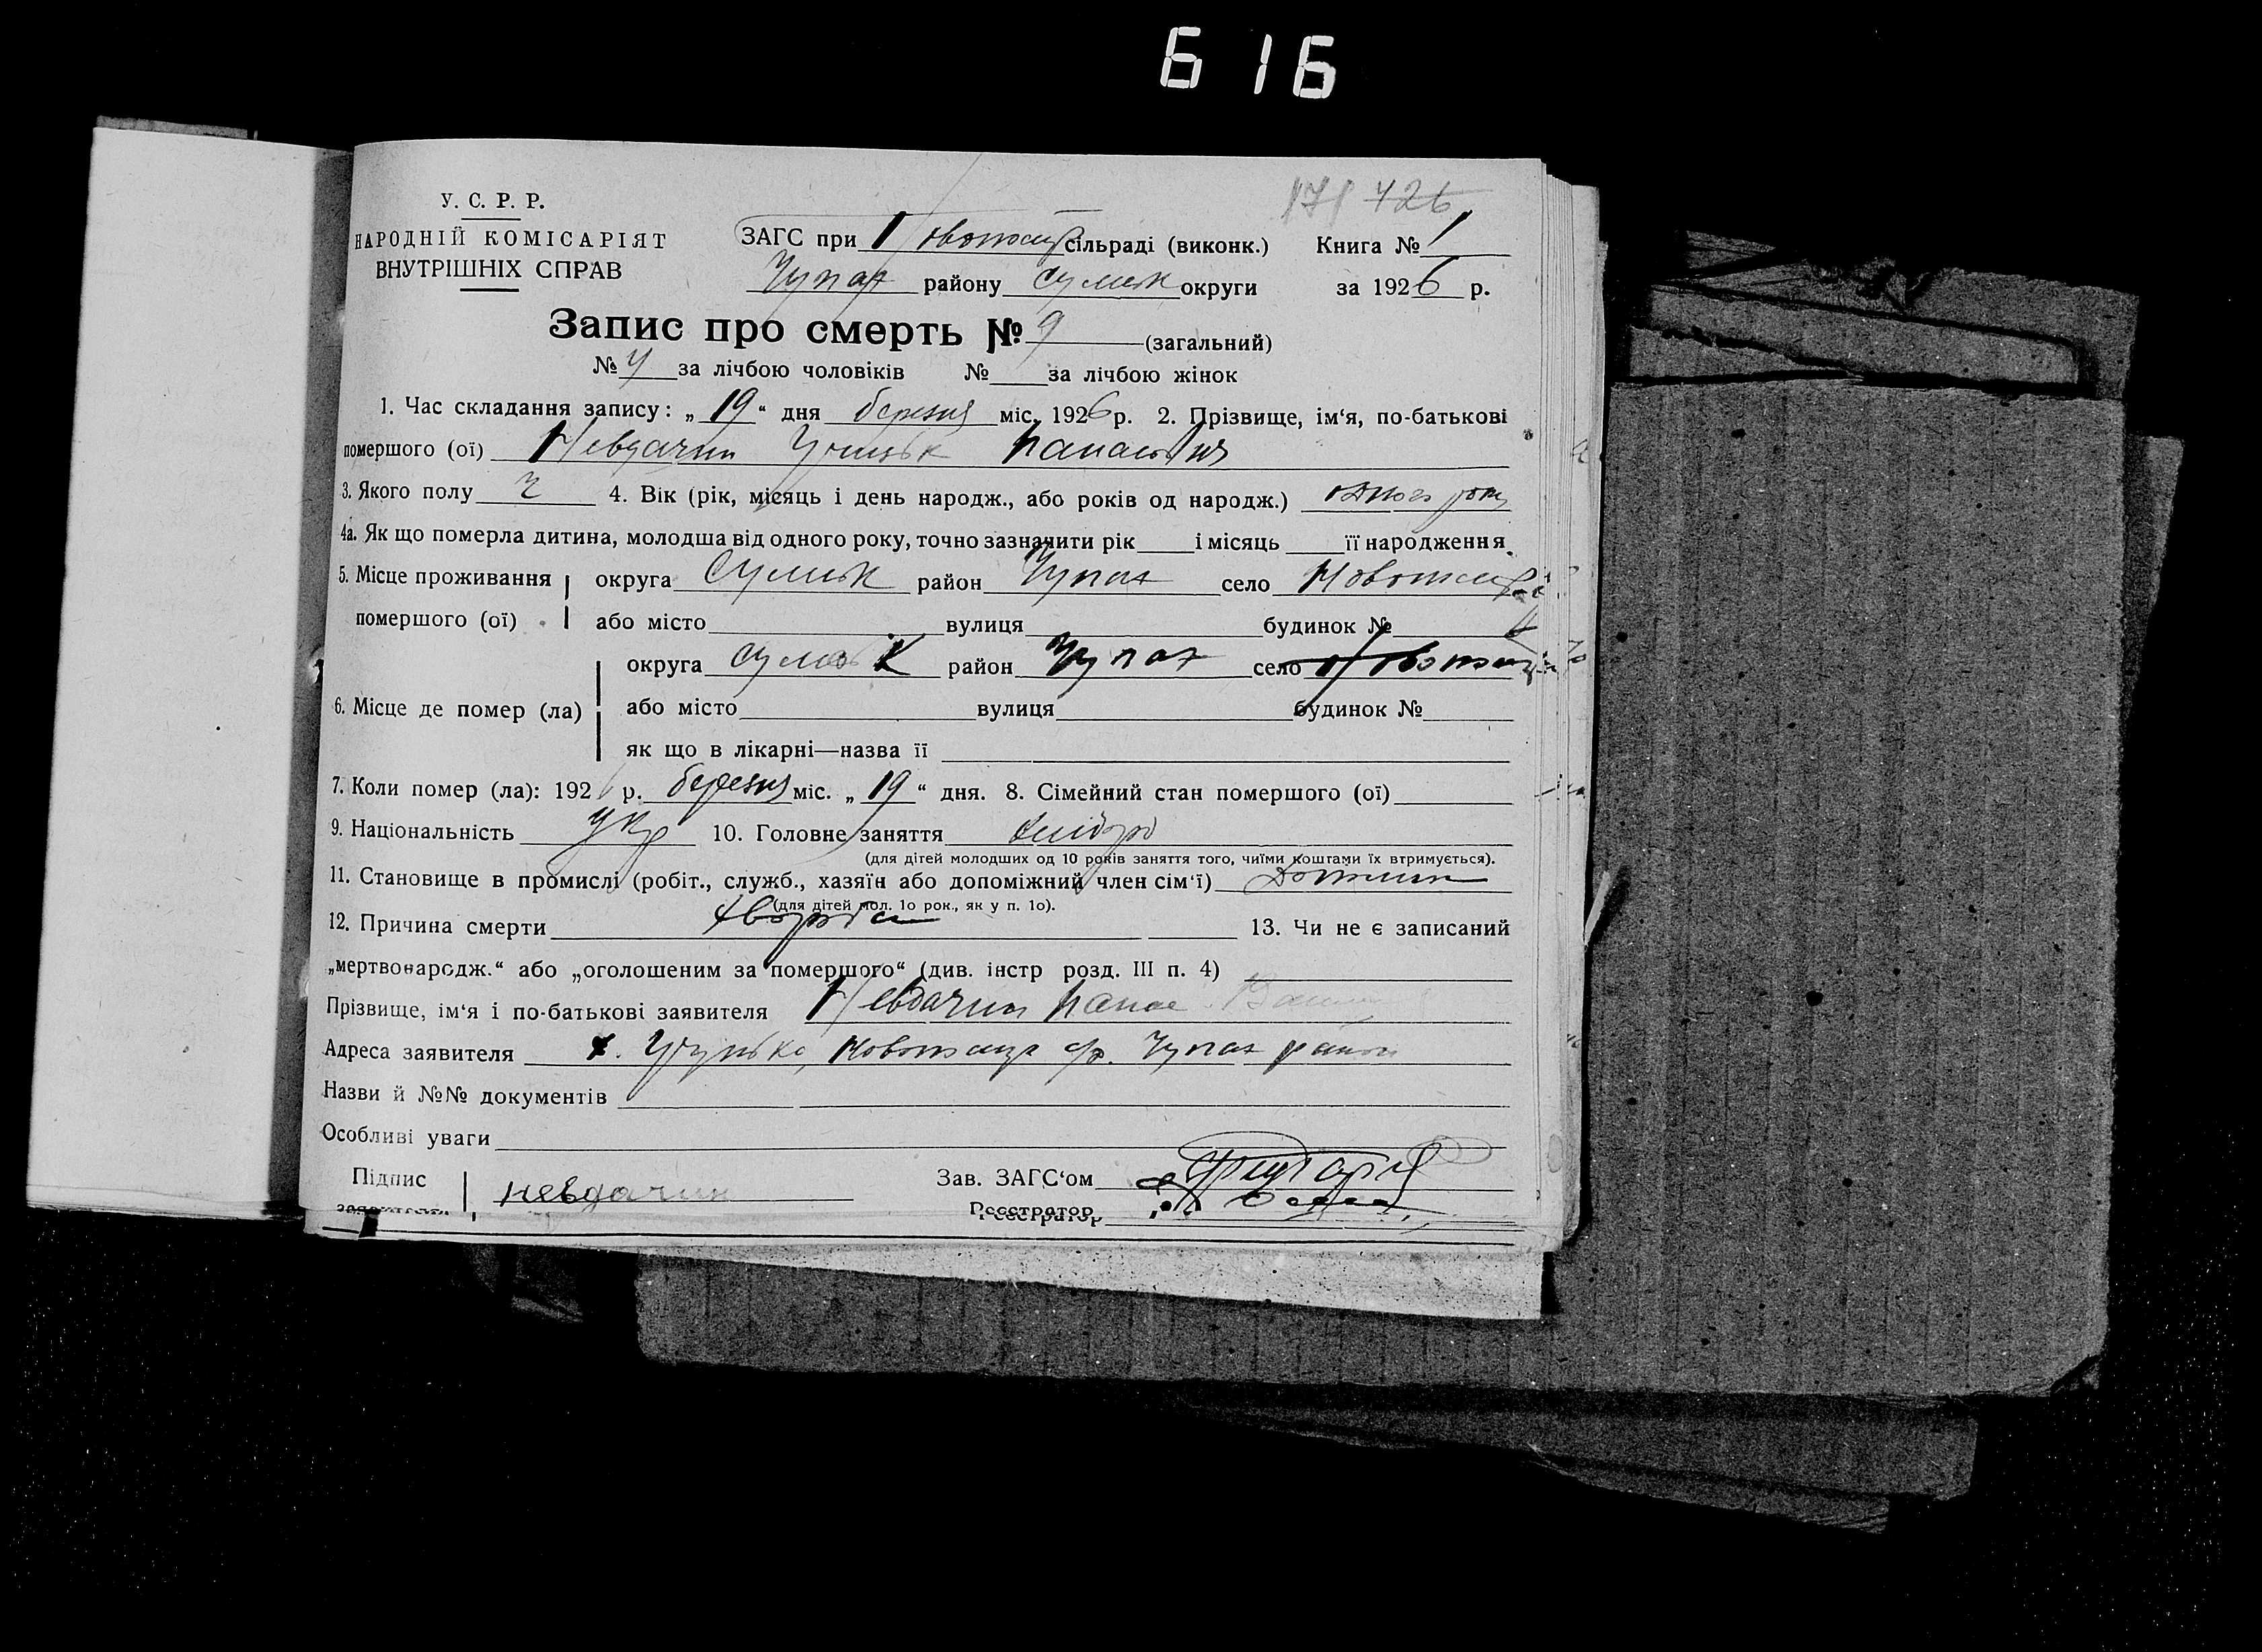 616
171 426
У. С. Р. Р.
НАРОДНІЙ КОМІСАРІЯТ
ВНУТРІШНІХ СПРАВ
ЗАГС при сільраді (виконк.) Книга № 1
Чупах району Сумськ округи за 1926 р.
Запис про смерть № 9 (загальний)
№ 4 за лічбою чоловіків № за лічбою жінок
1. Час складання запису: „ 19 “ дня березня міс. 1926 р. 2. Прізвище, ім‘я, по-батькові
помершого (ої) Невдачин Панасович
3. Якого полу ч 4. Вік (рік, місяць і день народж., або років од народж.) одного року
4а. Як що померла дитина, молодша від одного року, точно зазначити рік і місяць її народження.
5. Місце проживання округа Сумськ район Чупах село
помершого (ої) або місто вулиця будинок №
округа Сумськ район Чупах село
6. Місце де помер (ла) або місто вулиця будинок №
як що в лікарні—назва її
7. Коли помер (ла): 192 р. березня міс. „ 19 “ дня. 8. Сімейний стан помершого (ої)
9. Національність укр 10. Головне заняття хлібороб
(для дітей молодших од 10 років заняття того, чиїми коштами їх втримується).
11. Становище в промислі (робіт., служб., хазяїн або допоміжний член сім‘ї)
(для дітей мол. 10 рок., як у п. 10).
12. Причина смерти 13. Чи не є записаний
„мертвонародж.“ або „оголошеним за помершого“ (див. інстр розд. III п. 4)
Прізвище, ім‘я і по-батькові заявителя Невдачин Панас
Адреса заявителя Чупах район
Назви й №№ документів
Особливі уваги
Підпис заявителя Невдачин
Зав. ЗАГС‘ом
Реєстратор